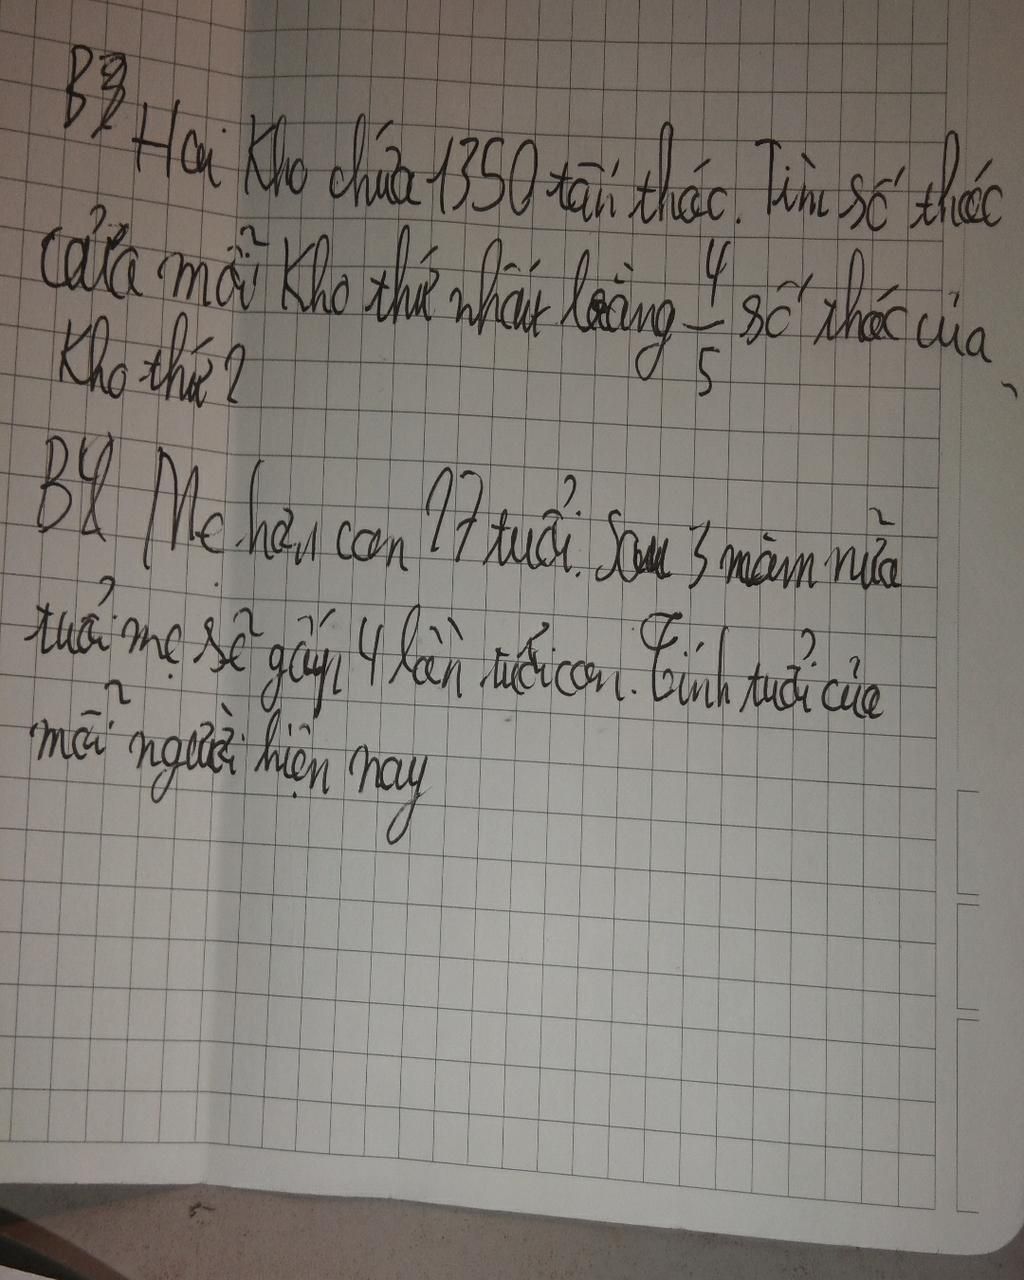 B3
Hai Kho chứa 1350 tấn thóc. Tìm số thóc
của mỗi Kho thứ nhất bằng 4/5 số thóc của
Kho thứ 2
B4 Mẹ hơn con 27 tuổi. Sau 3 năm nữa
tuổi mẹ sẽ gấp 4 lần tuổi con. Tính tuổi của
mỗi người hiện nay